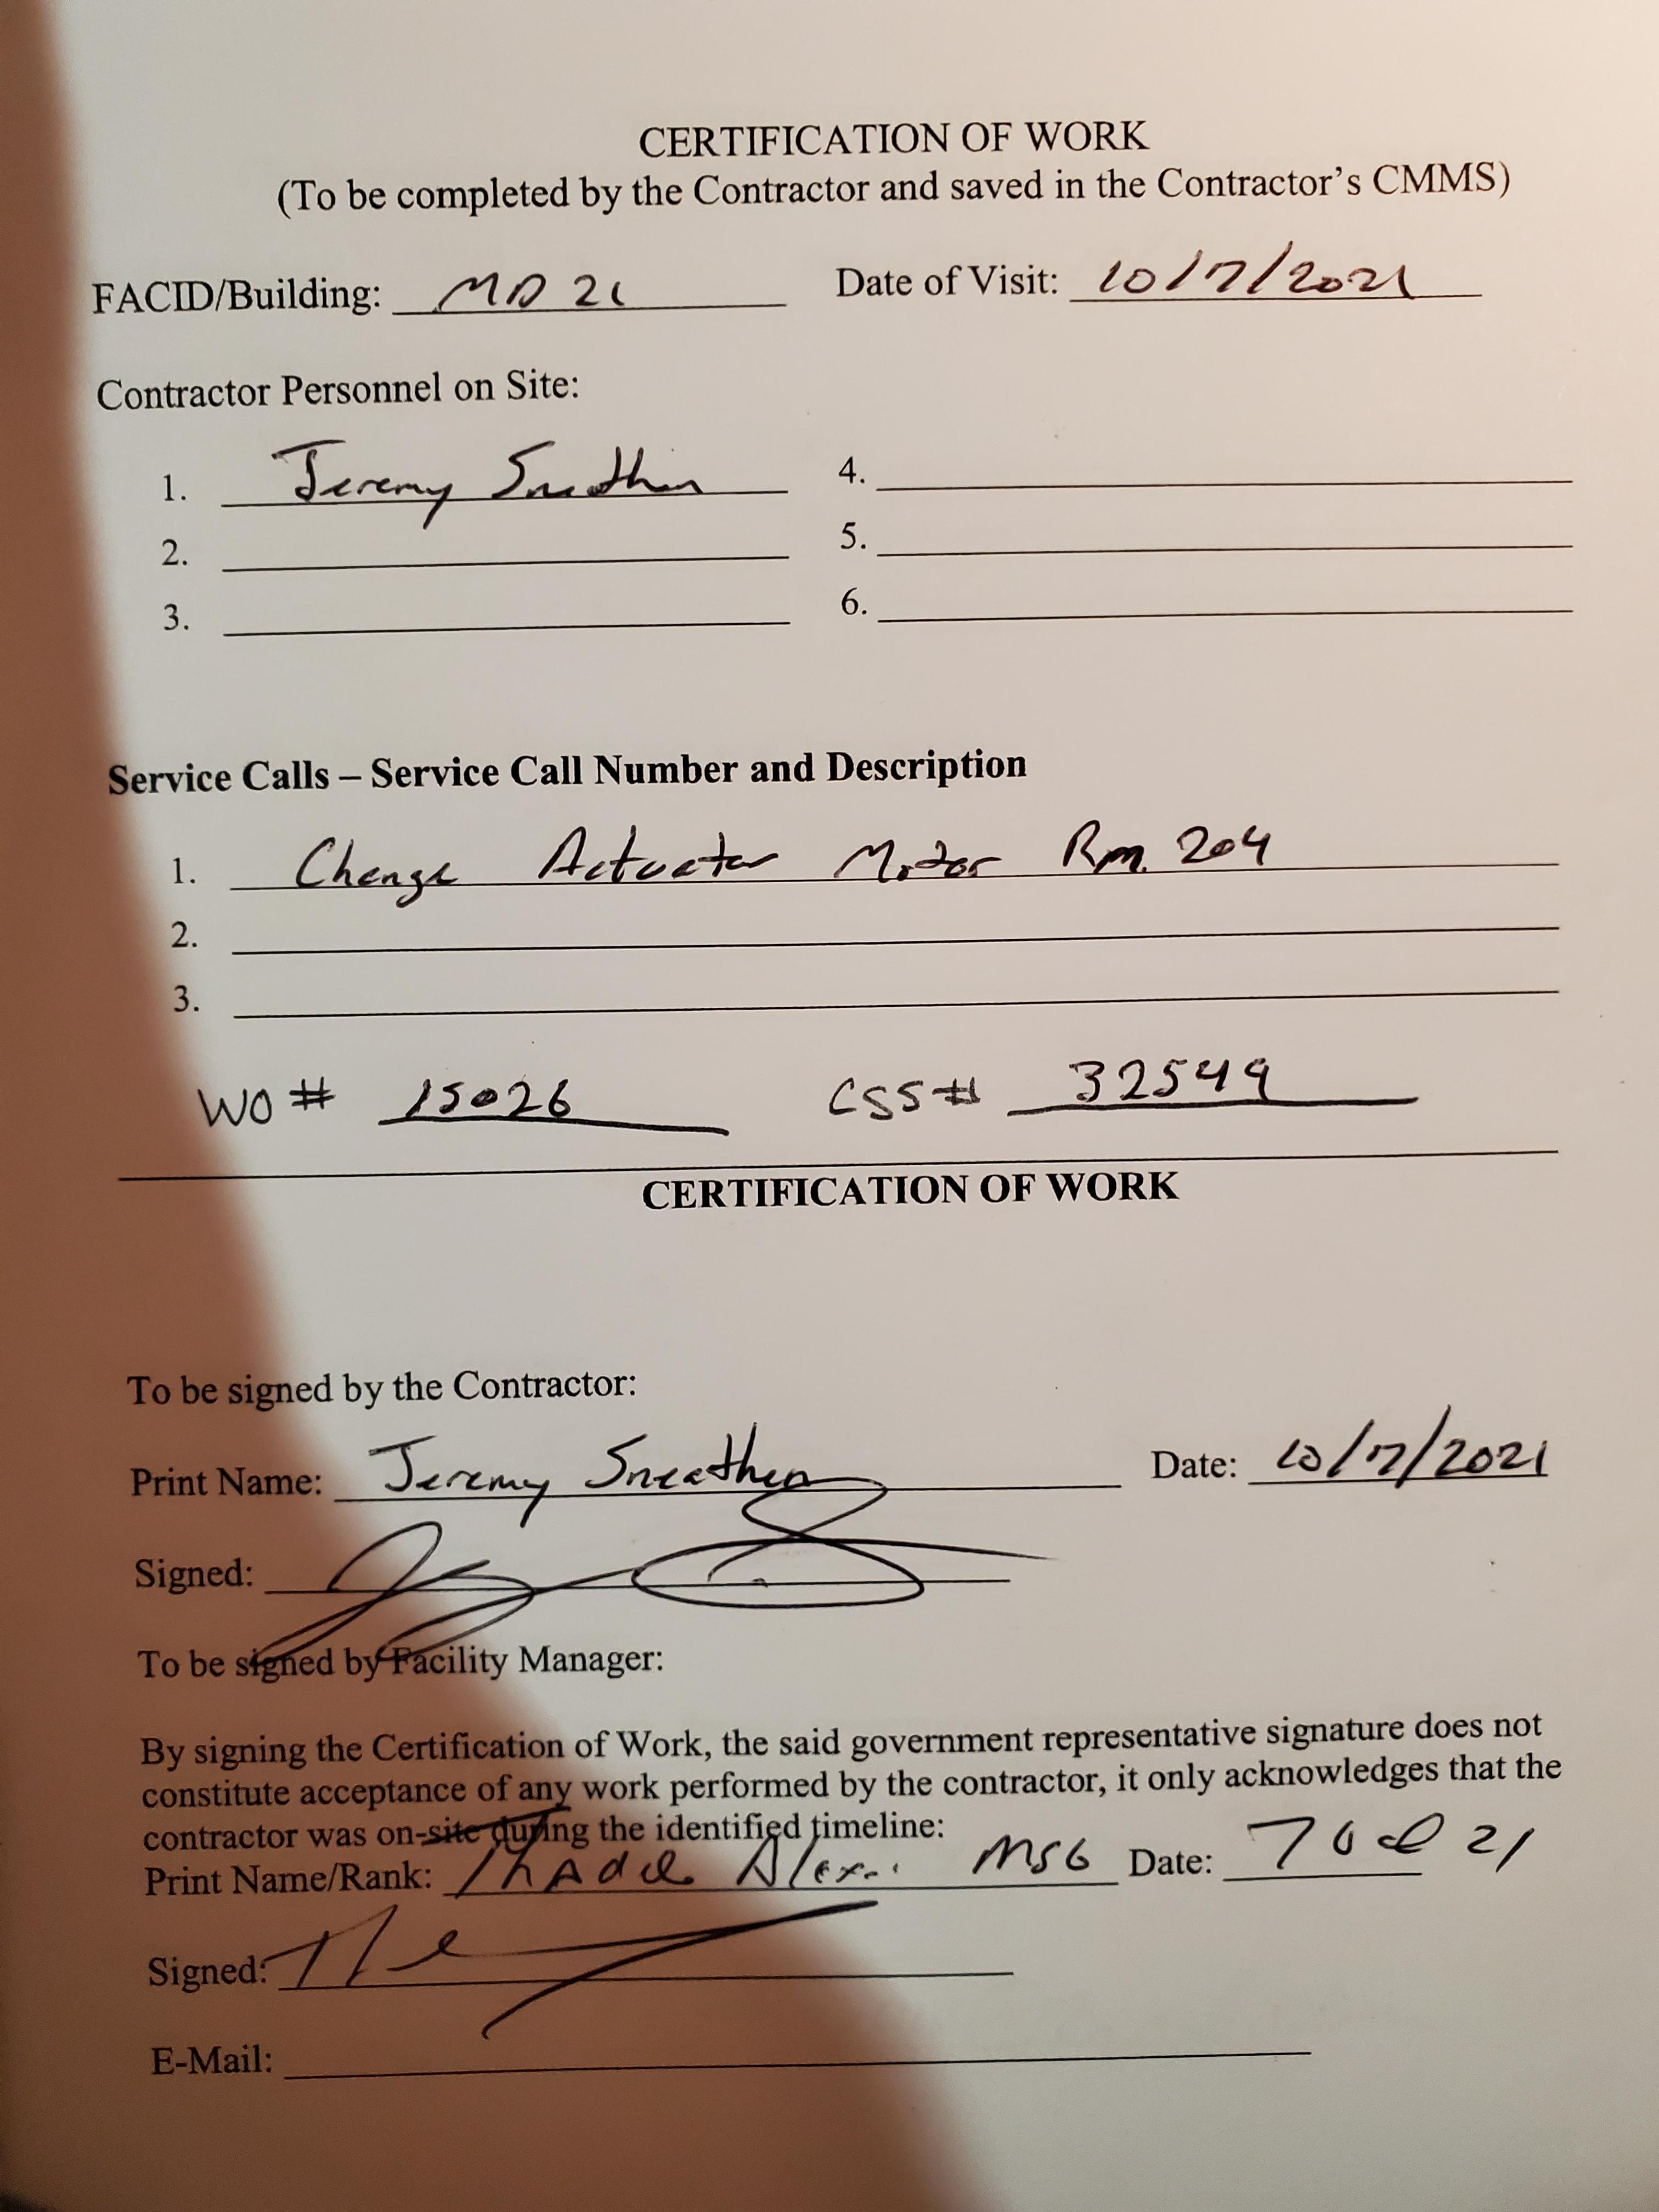 CERTIFICATION OF WORK
(To be completed by the Contractor and saved in the Contractor's CMMS)
FACID/Building: Date of Visit: 10/7/2021
Contractor Personnel on Site:
1. Jeremy 4.
2. 5.
3. 6.
Service Calls – Service Call Number and Description
1. Change Actuator Motor Rm. 204
2.
3.
WO # 15026 CSS# 32549
CERTIFICATION OF WORK
To be signed by the Contractor:
Print Name: Jeremy Sneathen Date: 10/7/2021
Signed:
To be signed by Facility Manager:
By signing the Certification of Work, the said government representative signature does not
constitute acceptance of any work performed by the contractor, it only acknowledges that the
contractor was on-site during the identified timeline:
Print Name/Rank: MSG Date: 7 Oct 21
Signed:
E-Mail: